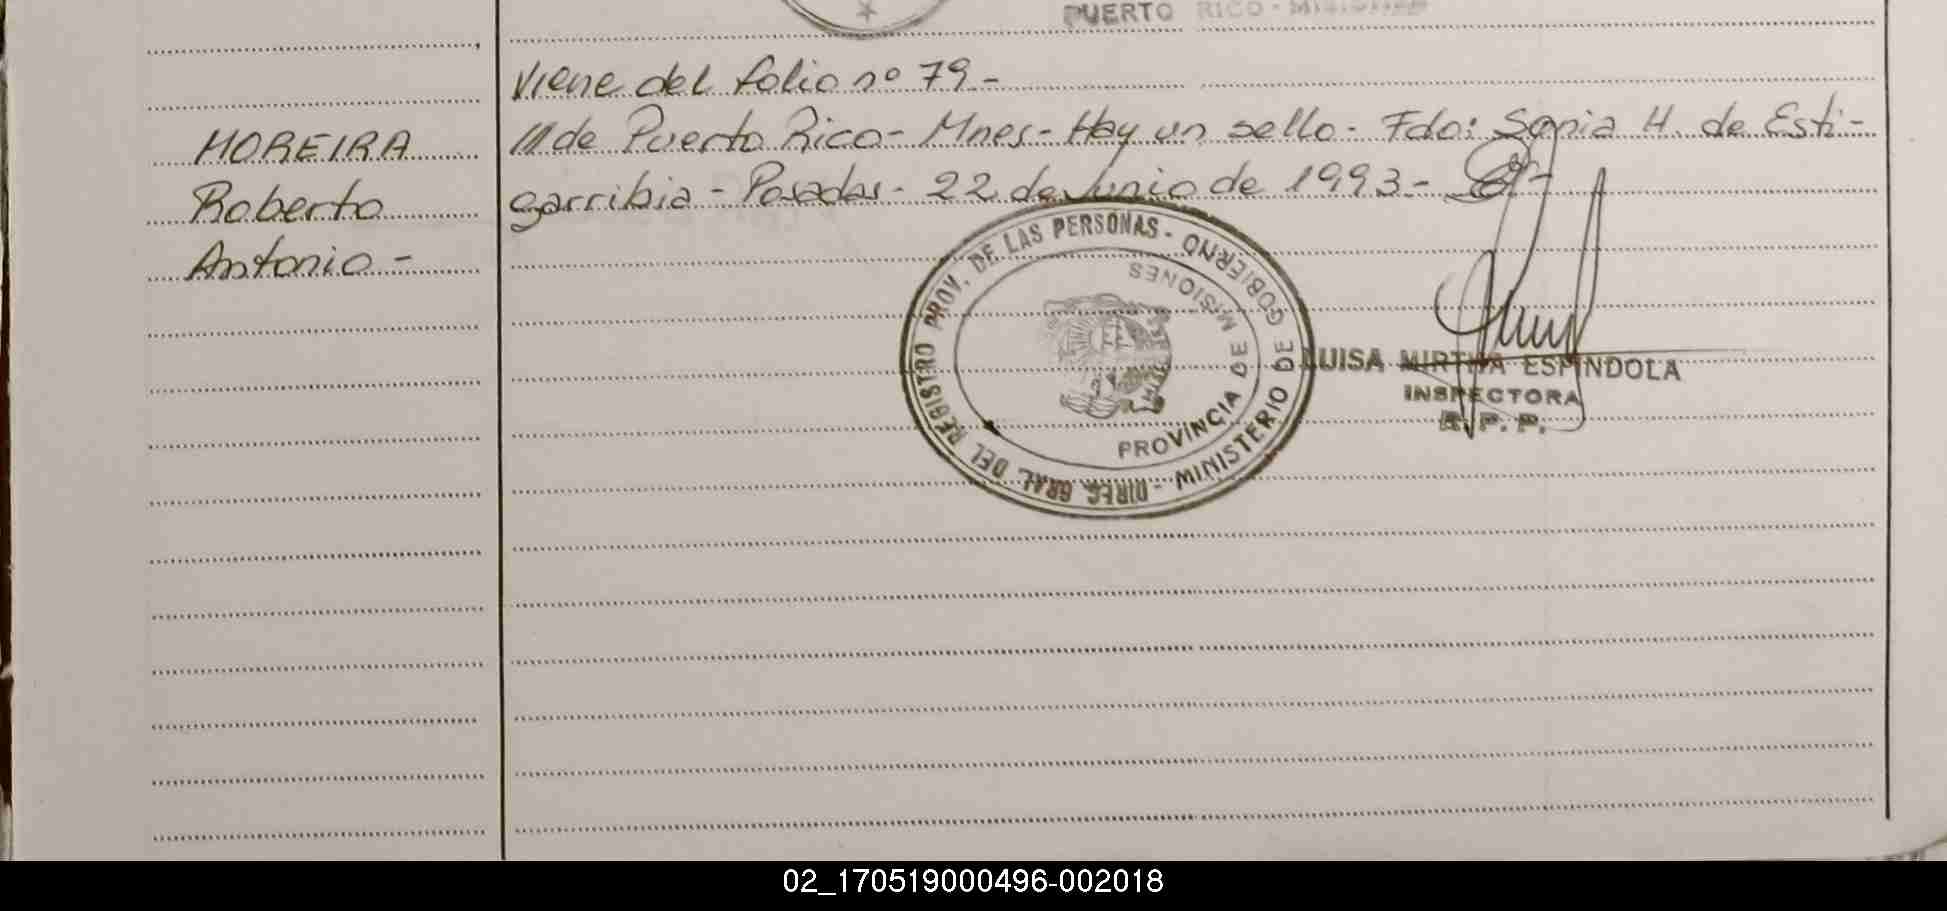 PUERTO RICO - MISIONES
Viene del folio nº 79-
MOREIRA
Roberto
Antonio -
///de Puerto Rico - Mnes - Hay un sello - Fdo: Sonia H. de Esti-
garribia - Posadas - 22 de Junio de 1993 -
DIREC. GRAL. DEL REGISTRO PROV. DE LAS PERSONAS - MINISTERIO DE GOBIERNO
PROVINCIA DE MISIONES
LUISA MIRTHA ESPINDOLA
INSPECTORA
R. P. P.
02_170519000496-002018